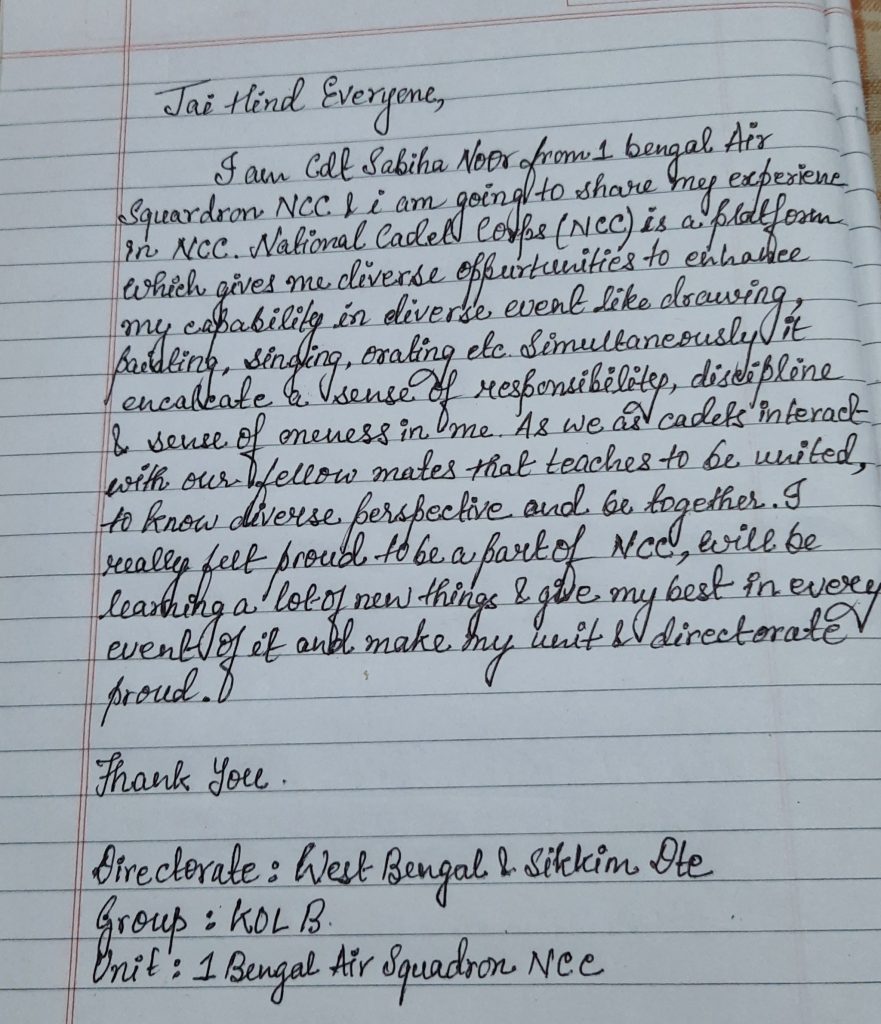 Jai Hind Everyone,
I am Cdt Sabiha Noor from 1 bengal Air
Squardron NCC & i am going to share my experienc
in NCC. National Cadet Corps (NCC) is a platform
which gives me diverse oppurtunities to enhance
my capability in diverse event like drawing,
painting, singing, orating etc. Simultaneously it
encalcate a sense of responsibility, discipline
& sense of oneness in me. As we as cadets interact
with our fellow mates that teaches to be united,
to know diverse perspective and be together. I
really felt proud to be a part of NCC, will be
learning a lot of new things & give my best in every
event of it and make my unit & directorate
proud.
Thank You.
Directorate : West Bengal & Sikkim Dte
Group : KOL B.
Unit : 1 Bengal Air Squadron NCC